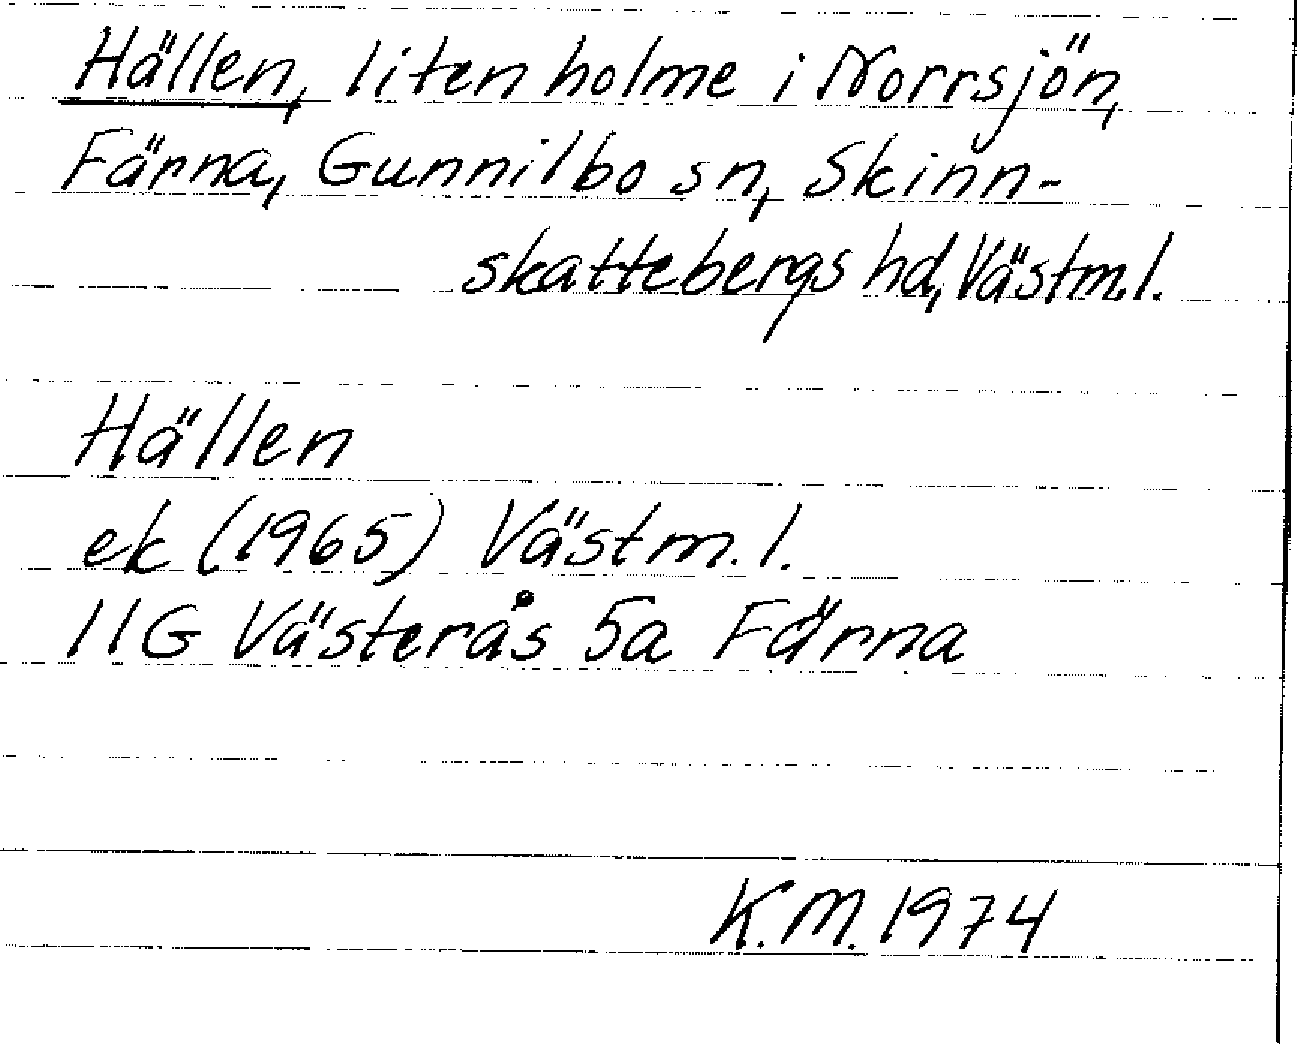 Hällen, liten holme i Norrsjön,
Färna, Gunnilbo sn, Skinn-
skattebergs hd, Västm.l.
Hällen
ek (1965) Västm.l.
11G Västerås 5a Färna
K.M. 1974